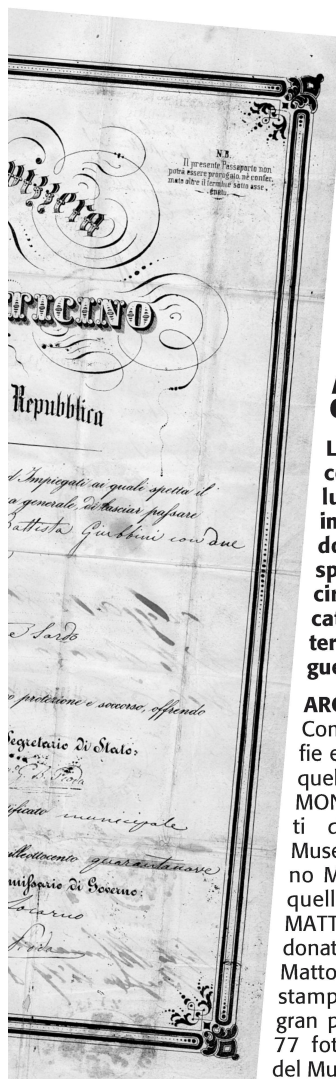 N.B.
Il presente Passaporto non
potrà essere prorogato, nè confer
mato oltre il termine sono asse
gnato.
vizzera
TICINO
Repubblica
ed Impiegati ai quali spetta il
a generale, di lasciar passare
Battista Giubbini con due
e Sardo
protezione e soccorso, offrendo
Segretario di Stato:
certificato municipale
milleottocento quarantanove
Commissario di Governo:
Locarno
L
c
lu
im
do
sp
cin
cat
ter
gue
ARC
Con
fie e
quel
MON
ti c
Muse
no M
quell
MATT
donat
Matto
stamp
gran p
77 fot
del Mu